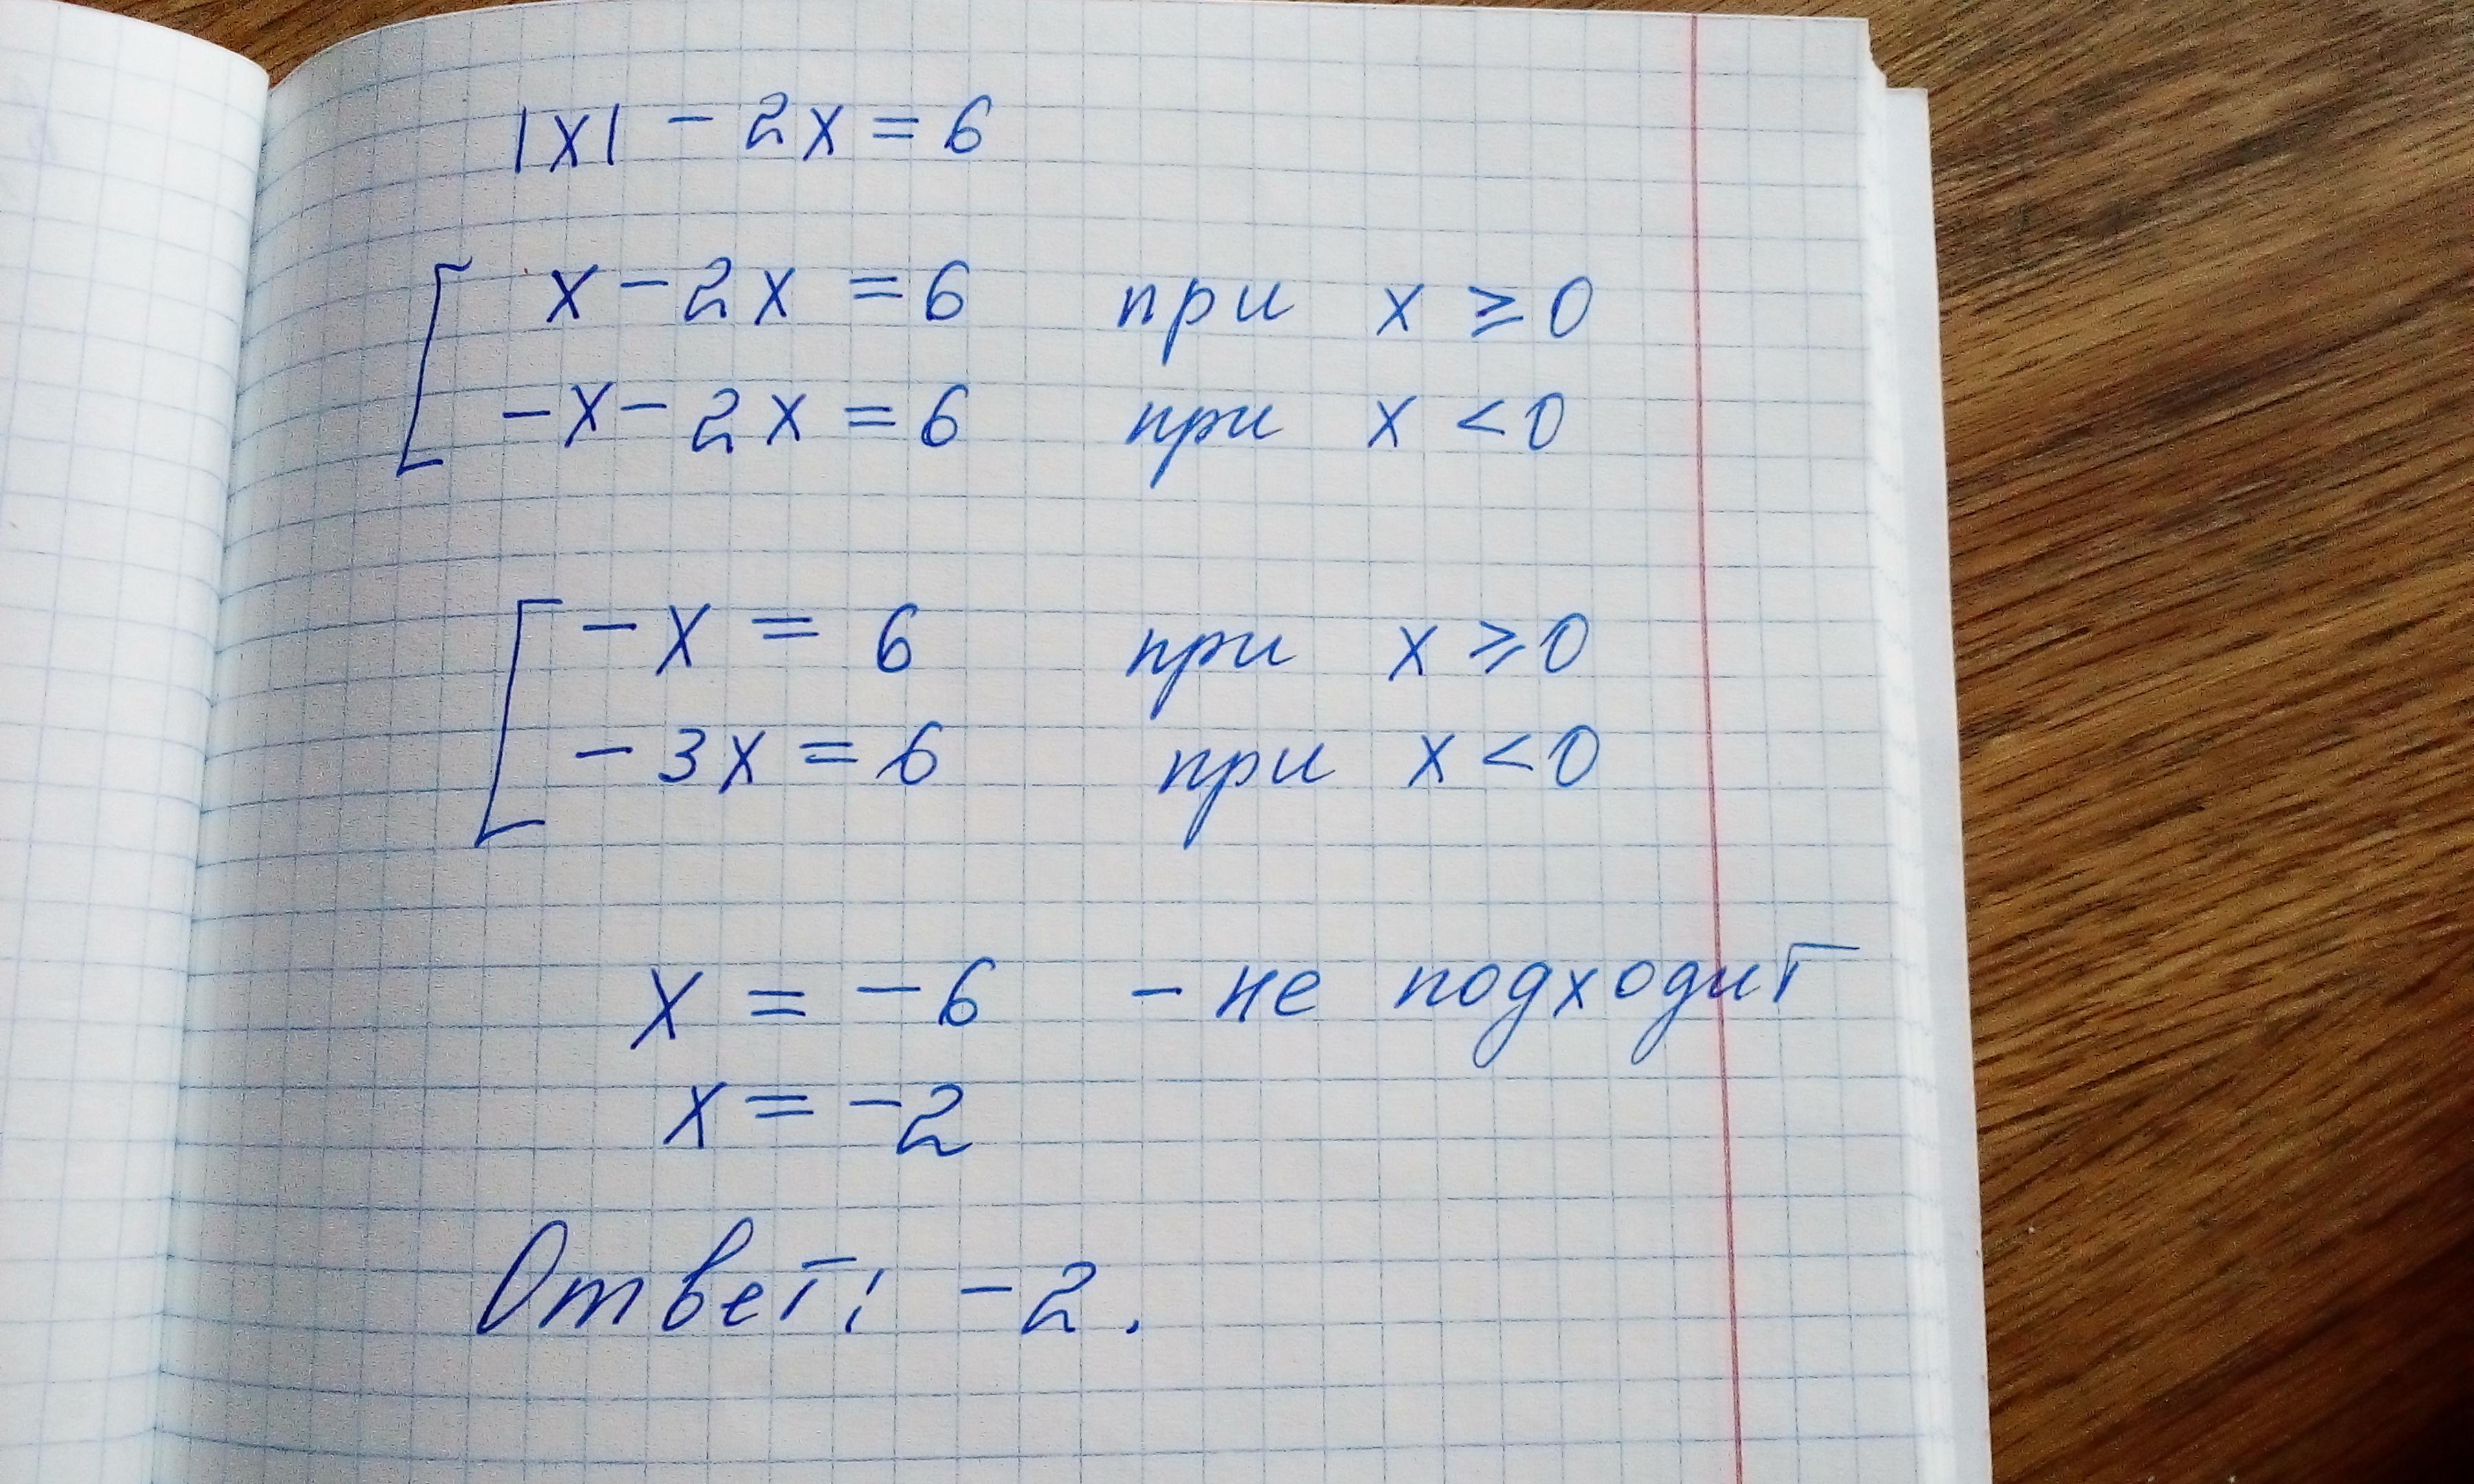 |x| - 2x = 6
x - 2x = 6 при x ≥ 0
-x - 2x = 6 при x < 0
-x = 6 при x ≥ 0
-3x = 6 при x < 0
x = -6 - не подходит
x = -2
Ответ: -2.